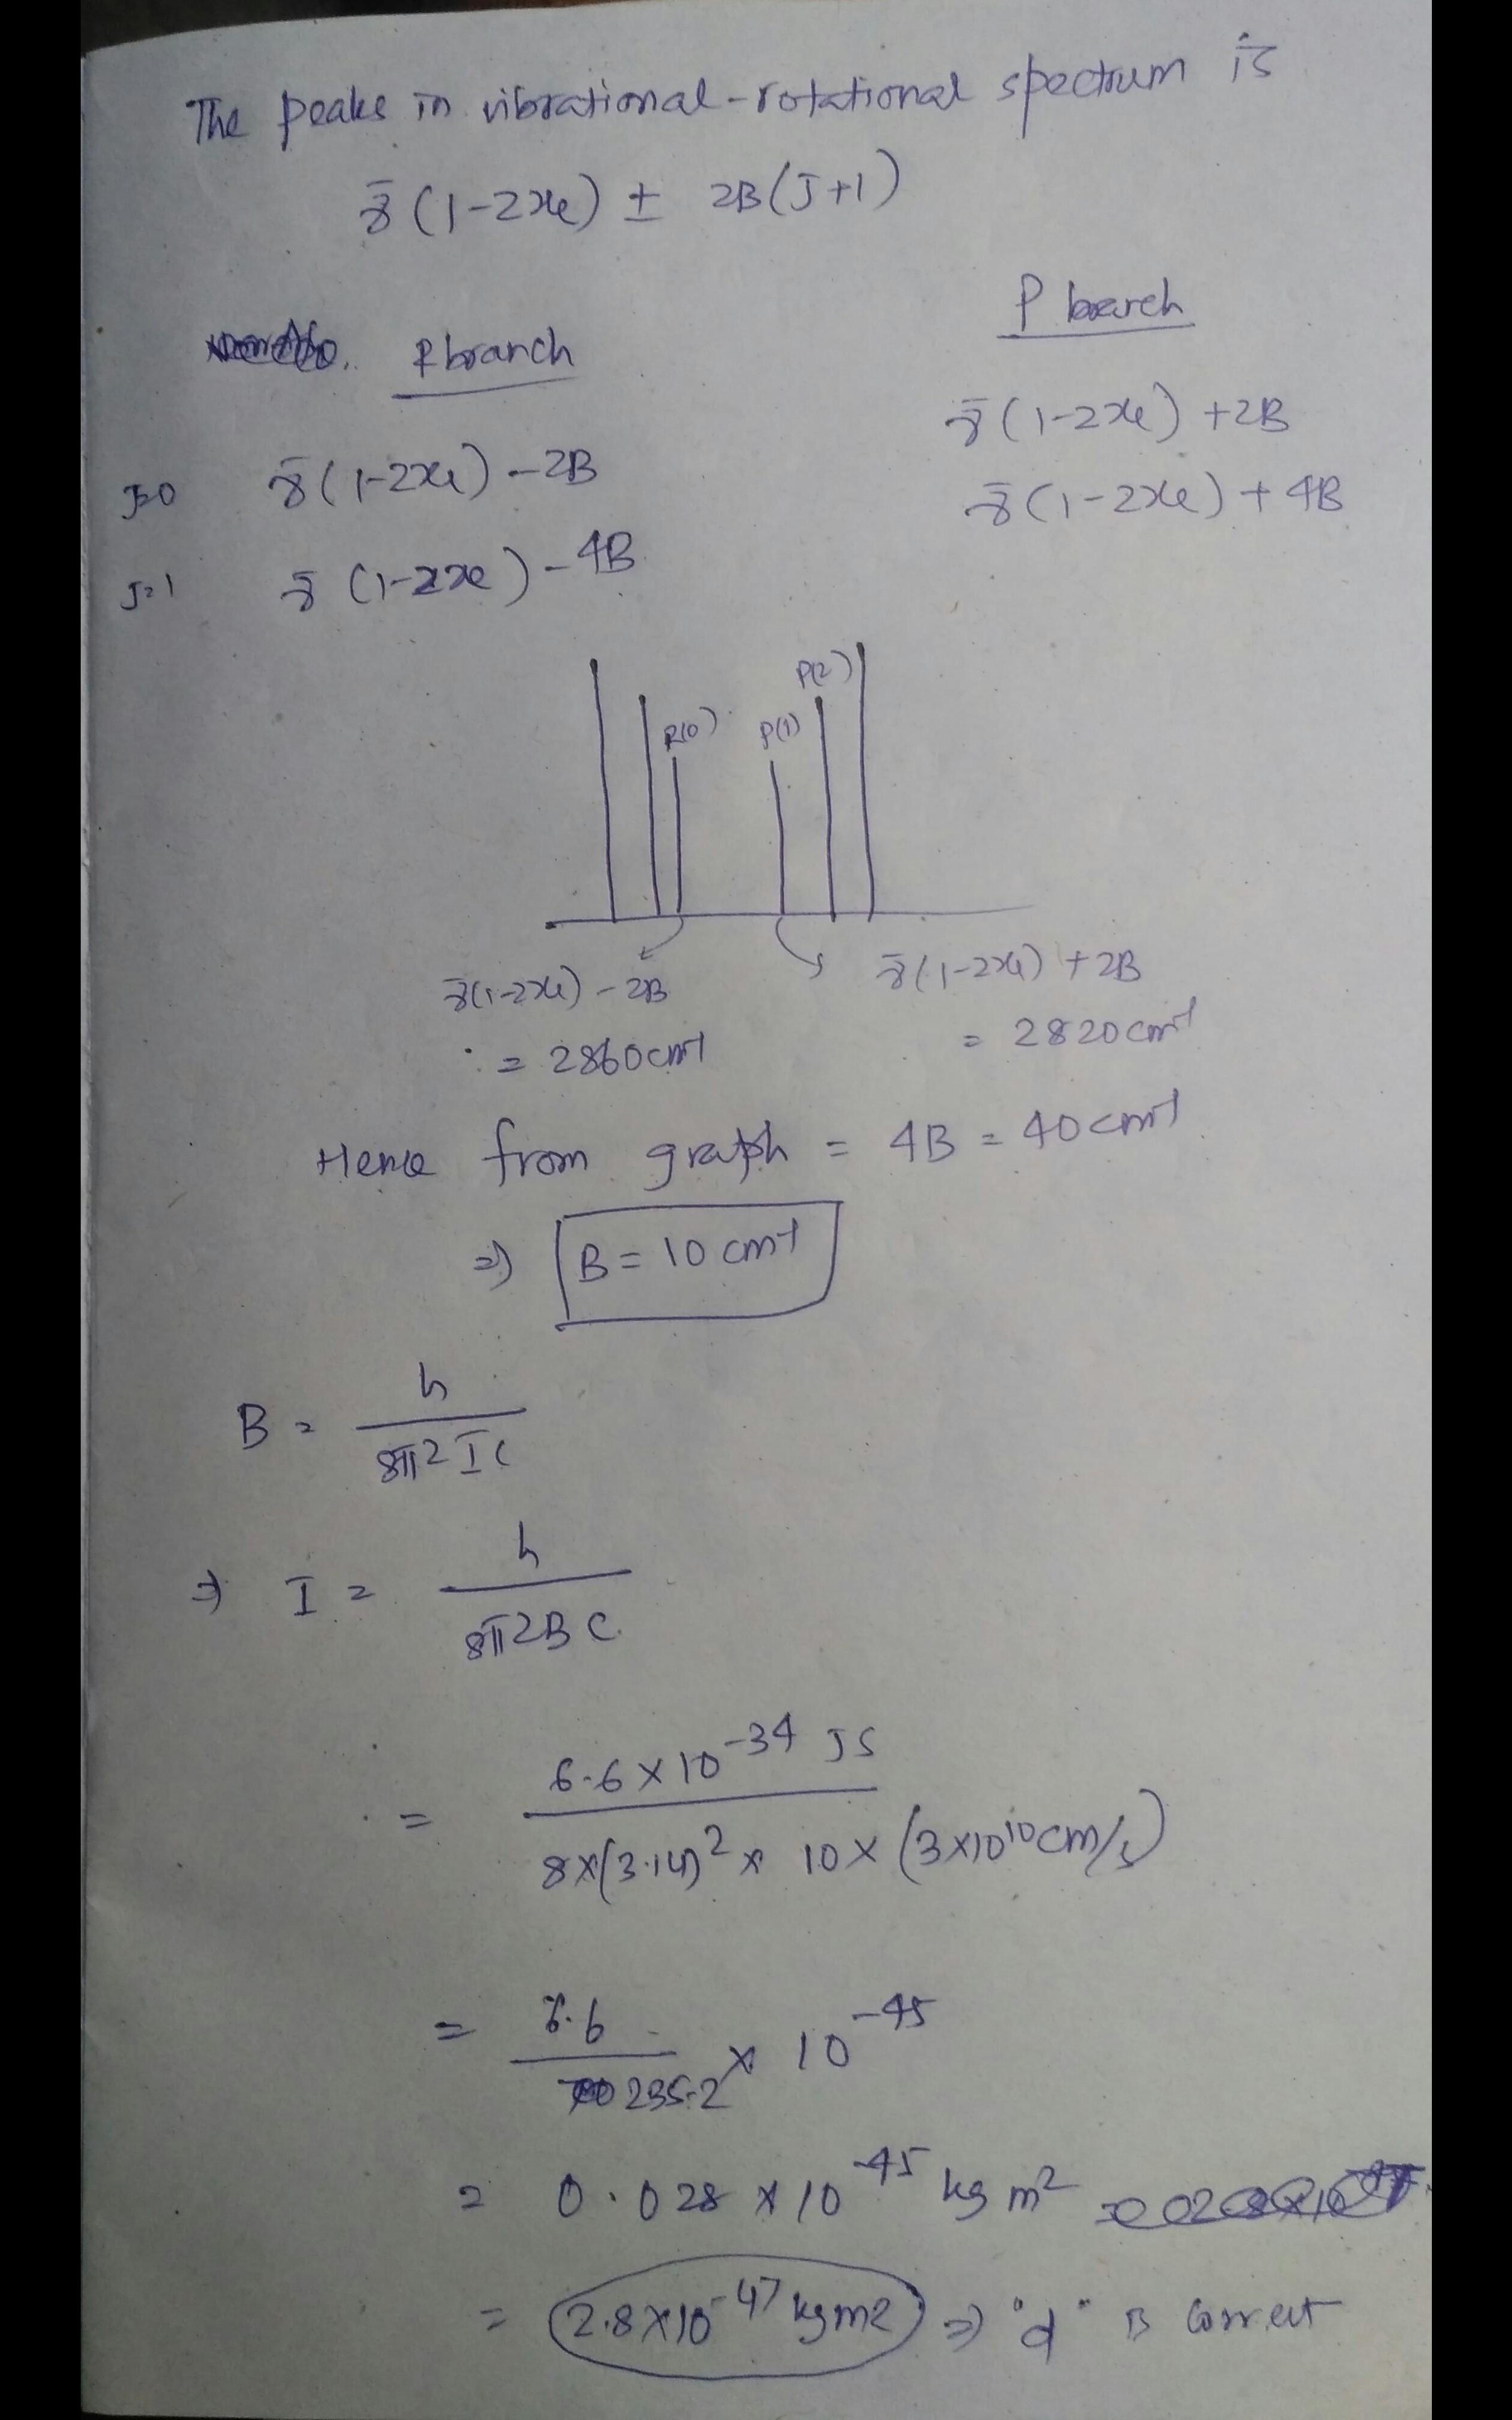 The peaks in vibrational-rotational spectrum is
ν̄(1-2xe) ± 2B(J+1)
R branch
P branch
ν̄(1-2xe) +2B
J=0 ν̄(1-2xe) -2B
ν̄(1-2xe) + 4B
J=1 ν̄(1-2xe) - 4B
P(2)
R(0) P(1)
ν̄(1-2xe) - 2B
ν̄(1-2xe) + 2B
= 2860 cm-1
= 2820 cm-1
Hence from graph = 4B = 40 cm-1
⇒ B = 10 cm-1
B = h / 8π2IC
⇒ I = h / 8π2BC
= 6.6 × 10-34 JS / 8×(3.14)2 × 10 × (3×1010 cm/s)
= 6.6 / 235.2 × 10-45
= 0.028 × 10-45 kg m2
= 2.8×10-47 kg m2 ⇒ "d" is correct